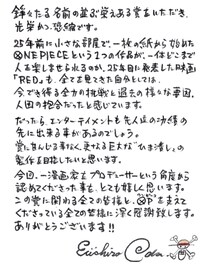 錚々たる名前の並ぶ栄えある賞をいただき、
光栄かつ恐縮です。
25年前に小さな部屋で、一枚の紙から始めた
ONE PIECEという1つの作品が、一体どこまで
人を楽しませられるのか、25年目に発表した映画
『RED』も、全てを見てきた自分としては、
今できる得る全力の挑戦と過去の様々な要因、
人間の抱合だったと感じています。
だったら、エンターテイメントも先人達の功績の
先に出来る事があるのでしょう。
賞に甘んじる事なく、更なる巨大な"ひまつぶし"の
製作を目指したいと思います。
今回、一漫画家をプロデューサーという角度から
認めてくださった事も、とても嬉しく思います。
この賞に関わる全ての皆様と、OPを支えて
くださっている全ての皆様に深く感謝致します。
ありがとうございます!!
Eiichiro Oda